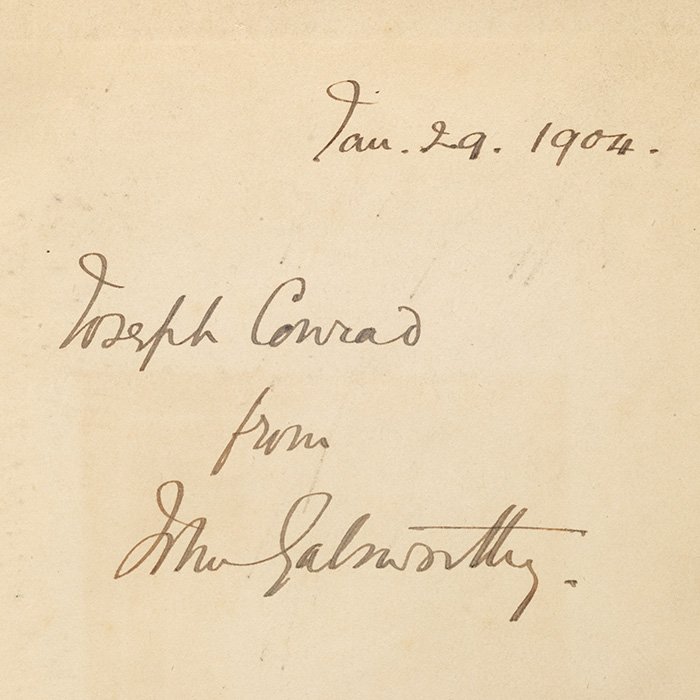 Jan. 29. 1904.
Joseph Conrad
from
John Galsworthy.